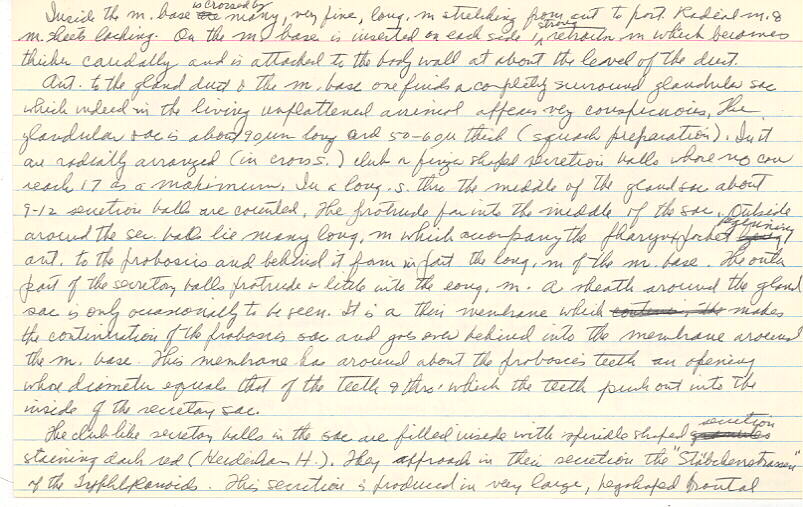 is crossed by
Inside the m. base are many, very fine, long. m stretching from ant to post. Radial m. &
m. sheets lacking. On the m. base is inserted on each side strong retractor m which becomes
thicker caudally and is attached to the body wall at about the level of the duct.
Ant. to the gland duct & the m. base one finds a completely surround glandular sac
which indeed in the living unflattened animal appears very conspicuous. The
glandular sac is about 90 µm long and 50-60 µ thick (squash preparation). In it
are radially arranged (in cross s.) club or finger shaped secretion balls whose no can
reach 17 as a maximum. In a long. s. thru the middle of the gland sac about
9-12 secretion balls are counted. The protrude far into the middle of the sac. Outside
around the sec. balls lie many long. m which accompany the pharynx pocket beginning
ant. to the proboscis and behind it form in part the long. m of the m. base. The outer
part of the secretory balls protrude a little into the long. m. A sheath around the gland
sac is only occasionally to be seen. It is a thin membrane which makes
the continuation of the proboscis sac and goes over behind into the membrane around
the m. base. This membrane has around about the proboscis teeth an opening
whose diameter equals that of the teeth & thro' which the teeth push out into the
inside of the secretory sac.
The club like secretory balls in the sac are filled inside with spindle shaped secretion
staining dark red (Heidenhain H.). They approach in their secretion the "Stäbchenstrassen"
of the Typhloplanoids. This secretion is produced in very large, pegshaped frontal